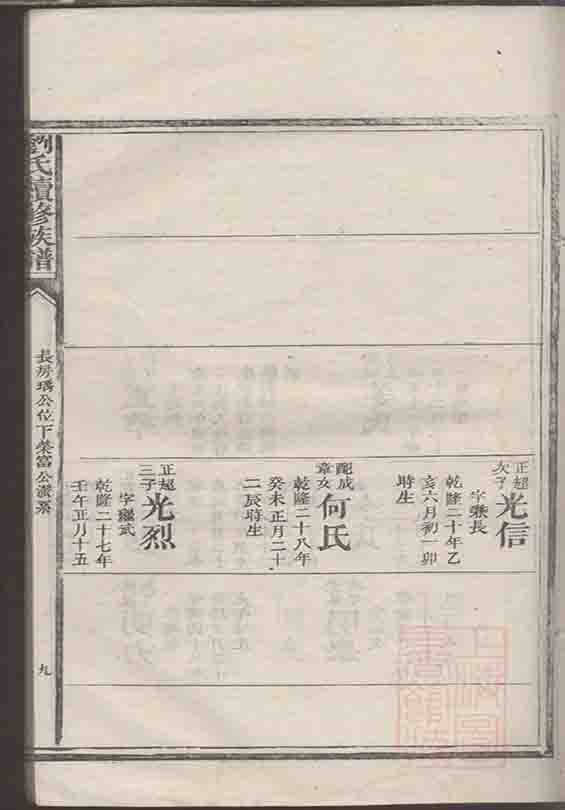 正超
次子
光信
字兼長
乾隆二十年乙
亥六月初一卯
時生
配成
章女
何氏
乾隆二十八年
癸未正月二十
二辰時生
正超
三子
光烈
字繼武
乾隆二十七年
壬午正月十五
劉氏續修族譜
長房瑀公位下榮富公派系
九